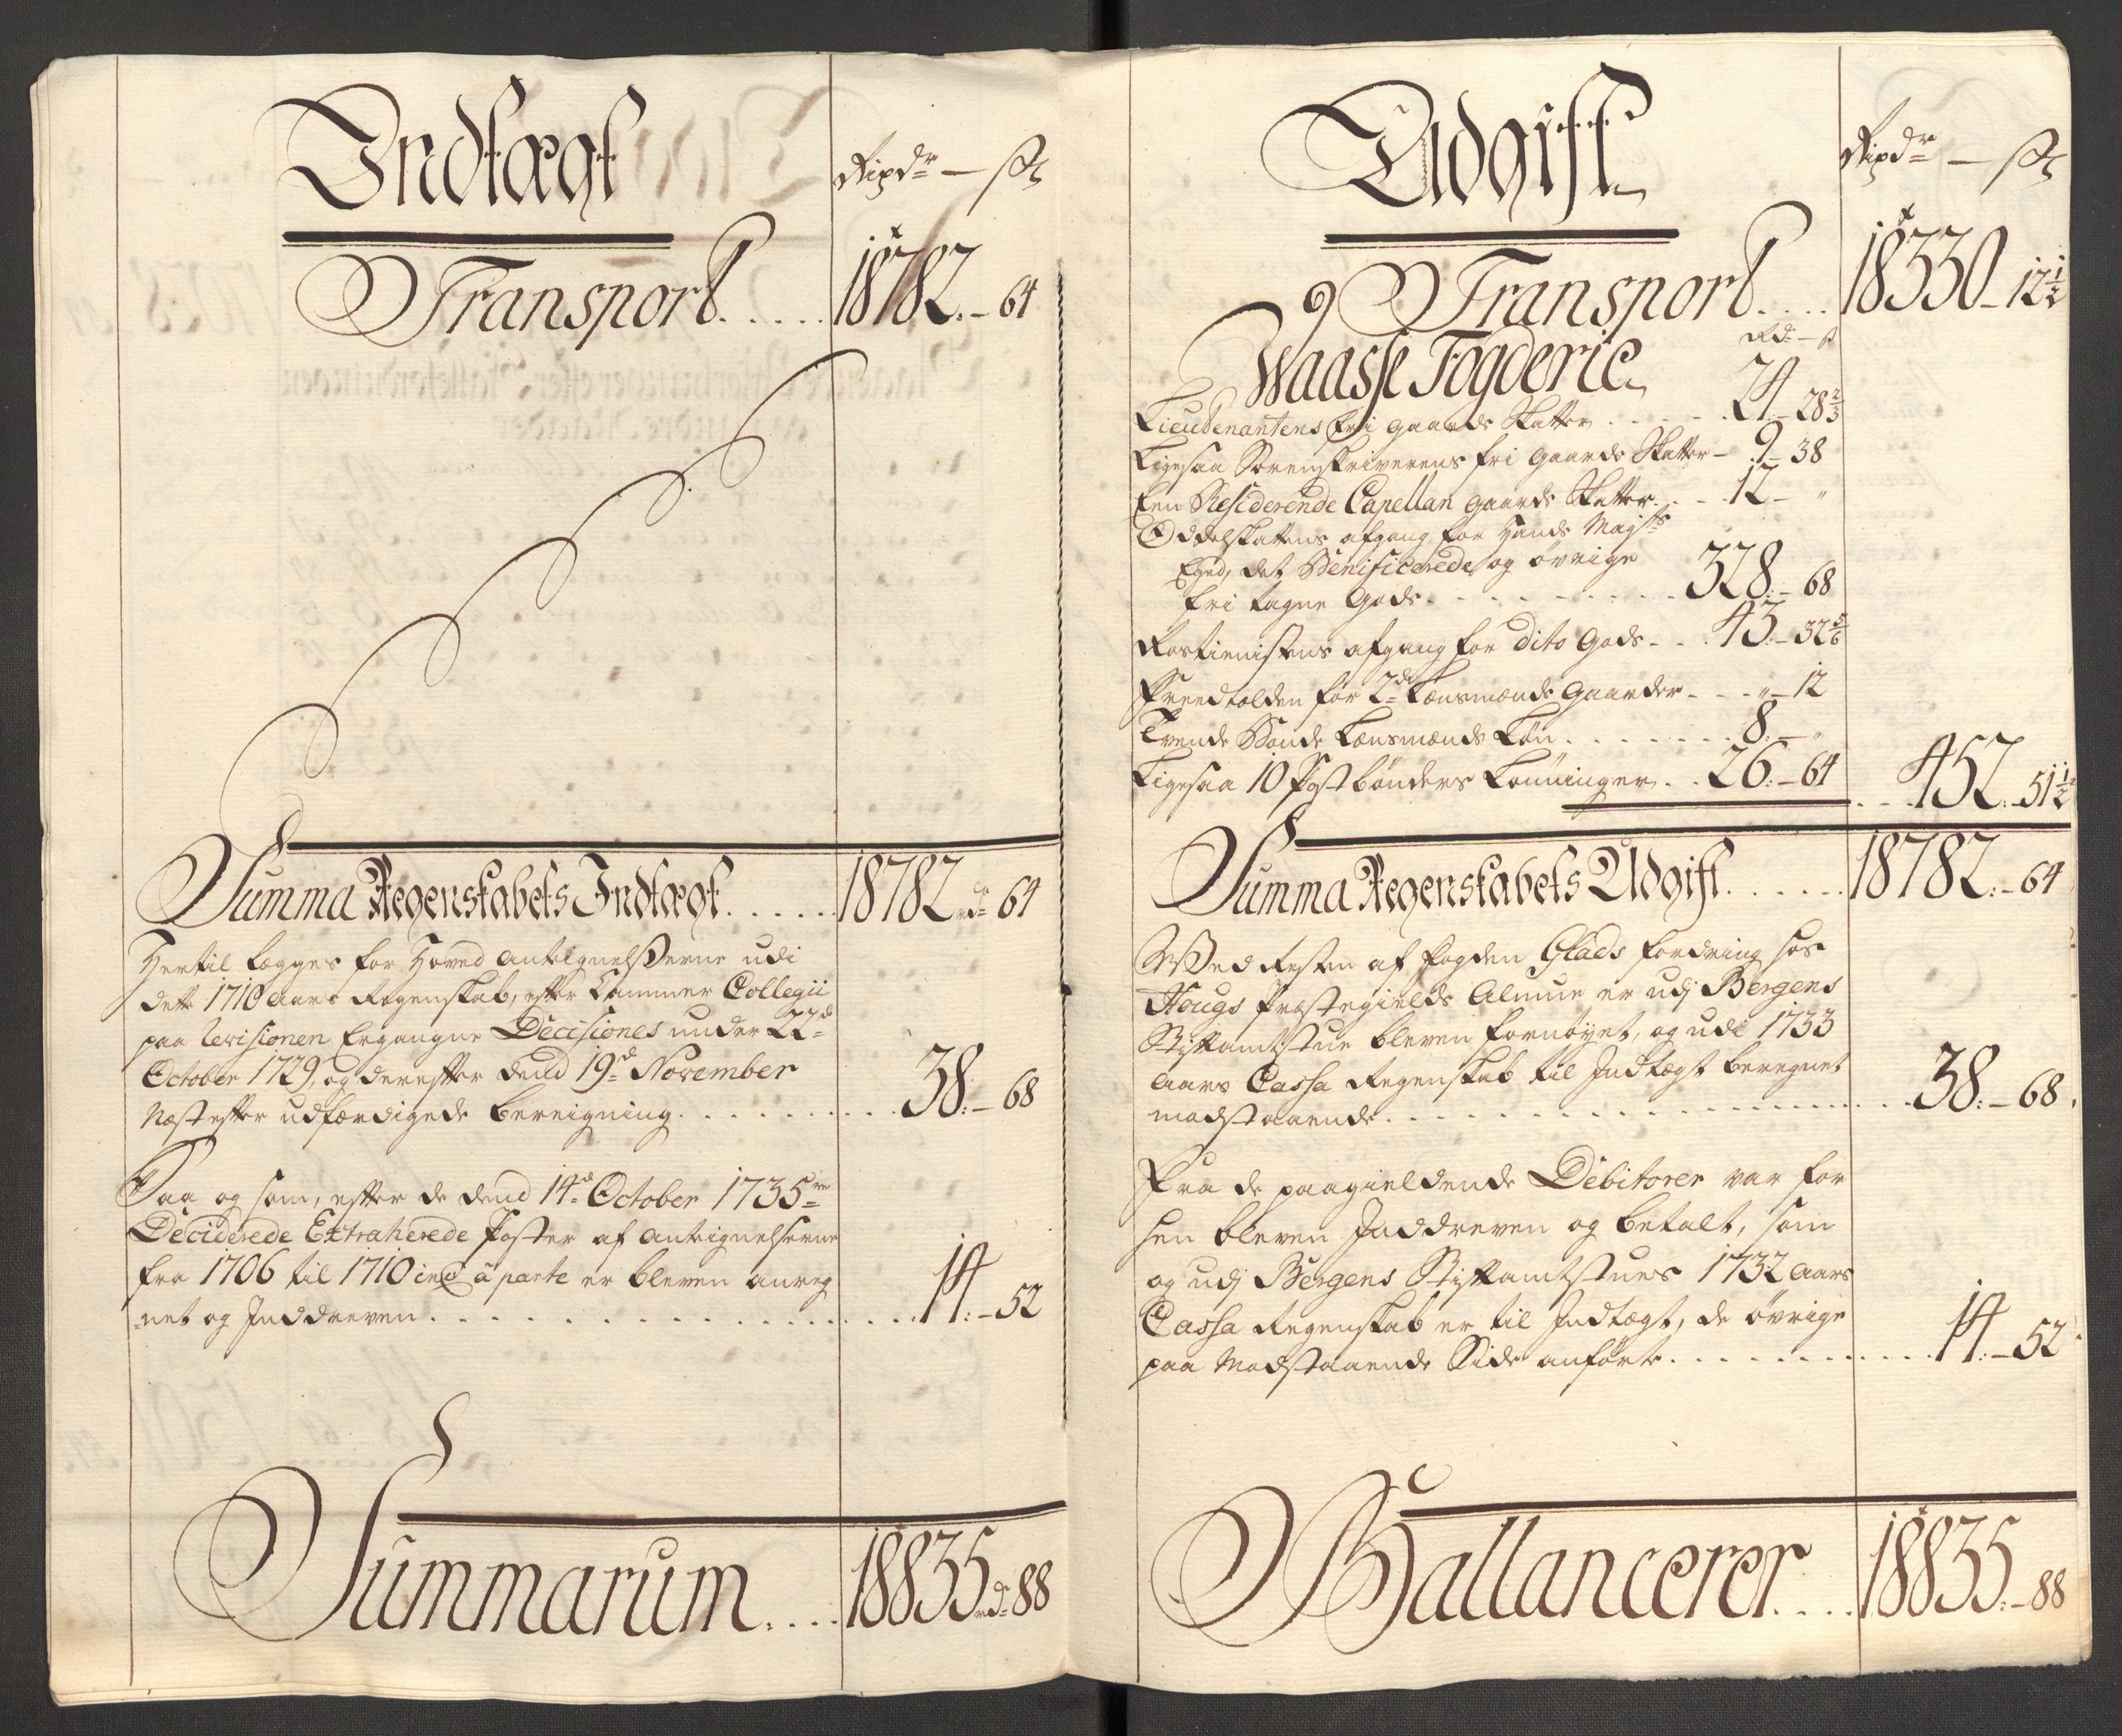 Indtægt
Ripdr — ß
Transport ..... 18782.–64
Summa Regenskabets Indtægt ...... 18782 rdr 64
Hertil Legges for Hoved Antegnelsserne udi
dette 1710 Aars Regenskab, efter Cammer Collegii
paa Revisionen Ergangne Decisiones under 22d
October 1729, og derefter dend 19d November
Næst efter udfærdigede bereigning ......... 38.–68
Saa og som, efter de dend 14d October 1735re
Deciderede Extraherede Poster af Antegnelserne
fra 1706 til 1710 incl. à parte er bleven anreg
-net og Inddreven ................ 14.–52
Summarum .... 18835 rd 88
Udgift
Ripdr — ß
Transport .... 18330–12½
Rdr – ß
Waasse Fogderie
Lieutenantens fri gaards Skatter ..... 24.–28⅔
Ligesaa Sorenskriverens fri gaards Skatter – 9–38
Een Residerende Capellan gaards Skatter ... 12–"
Oddelskattens afgang for Hands Maysts
Eged, det Benificerede og øvrige
fri tagne Gods .......... 328.–68
Rostienistens afgang for dito Gods ... 43.–32⅚
for 2de Lensmænds Gaarder - - - "–12
Tvende Bonde Lensmænds Løn ........ 8.–"
Ligesaa 10 Postbønders Lønninger .. 26.–64 ... 452.51½
Summa Regenskabets Udgift ...... 18782.–64
Ved Resten af fogden Glads fordring hos
Hougs Præstegields Almue er udj Bergens
Stiftamtstue bleven fornøyet, og udi 1733
Aars Cassa Regenskab til Indtægt beregnet
modstaaende .................. 38.–68.
Fra de paagieldende Debitorer var for
hen bleven Inddreven og betalt, som
og udj Bergens Stiftamtstues 1732 Aars
Cassa Regenskab er til Indtægt, de øvrige
paa Modstaaende Side anførte ............. 14.–52
Ballancerer .... 18835.–88